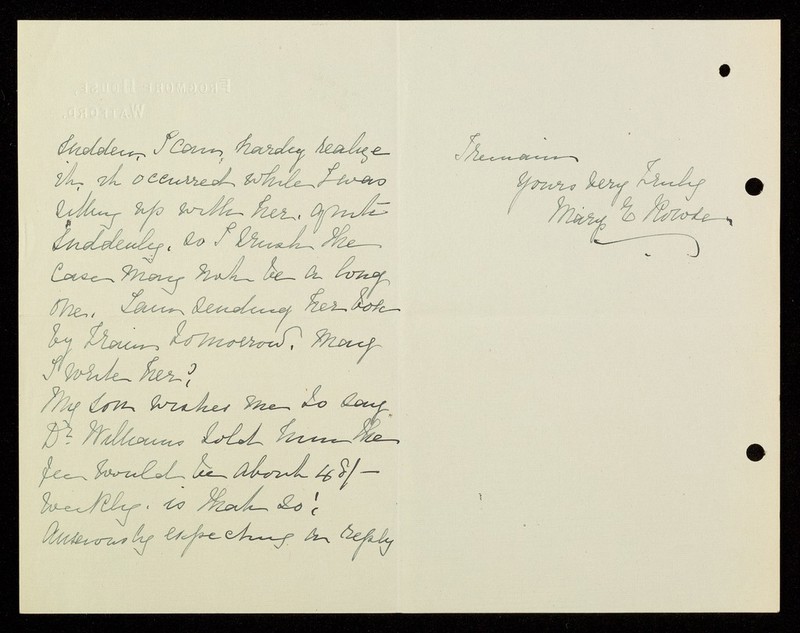 Frogmore House,
Watford.
sudden, I can, hardly realize
it, it occurred while I was
sitting up with her, quite
suddenly. so I trust the
case may not be a long
one. I am sending her box
by train tomorrow. May
I write her?
My son wishes me to say
Dr. Williams told him the
fee would be about 48/-
weekly. is that so?
Anxiously expecting a reply
I remain
Yours very Truly
Mary E Rowse